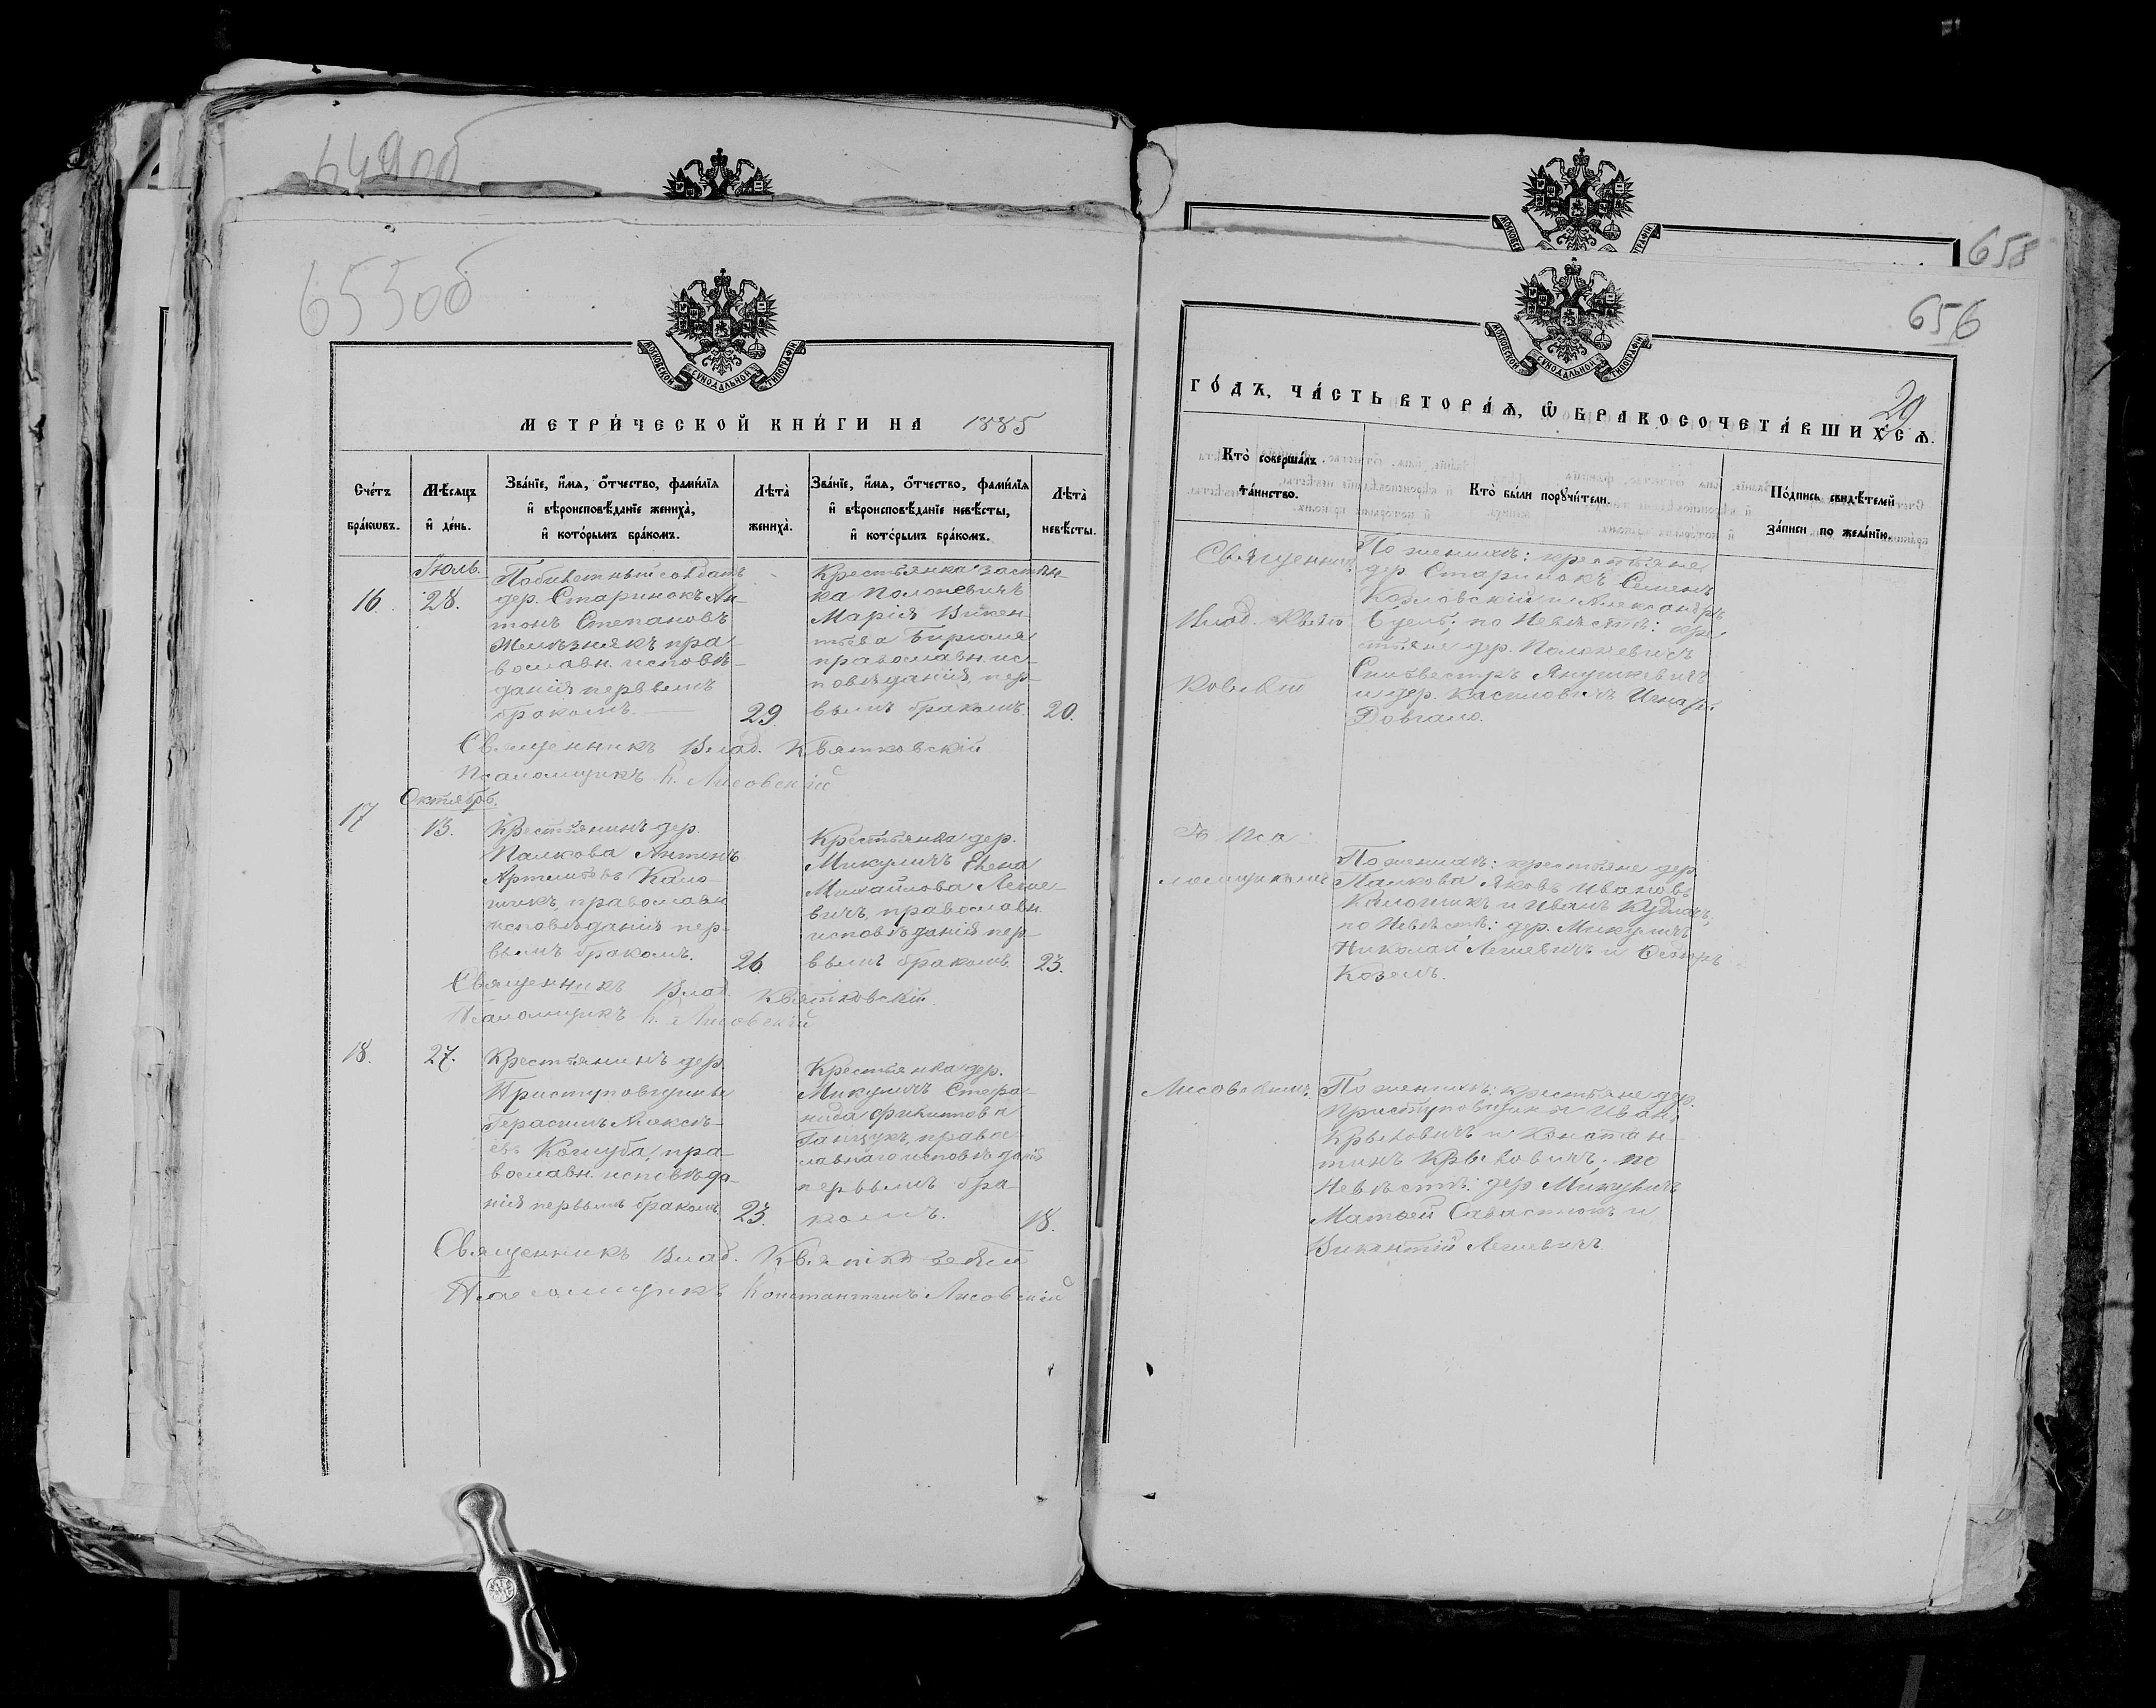 649об
655об
МОСКОВСКОЙ СѴНОДАЛЬНОЙ ТИПОГРАФІИ
МЕТРИ́ЧЕСКОЙ КНИ́ГИ НА 1885
Сче́тъ бра́кѡвъ.
Мѣ́сѧцъ и҆ де́нь.
Зва́нїе, и҆́мѧ, ѻ҆́тчество, фами́лїѧ и҆ вѣроисповѣ́данїе жениха̀, и҆ кото́рымъ бра́комъ.
Лѣта̀ жениха̀.
Зва́нїе, и҆́мѧ, ѻ҆́тчество, фами́лїѧ и҆ вѣроисповѣ́данїе невѣ́сты, и҆ кото́рымъ бра́комъ.
Лѣта̀ невѣ́сты.
Іюль.
16.
28.
дер. Старинокъ Ан-
тонъ Степановъ
Желѣзнякъ пра
вославн. исповѣ-
данія первымъ
бракомъ.
29
Крестьянка застѣн-
ка Полоневичъ
Марія Викен-
тьева
православн. ис-
повѣданія, пер-
вымъ бракомъ.
20.
Священникъ Влад. Квятковскій
Псаломщикъ К. Лисовскій
Октябрь.
17
13.
Крестьянинъ дер.
Палкова Антонъ
Артемьевъ Кало-
шикъ, православн
исповѣданія пер-
вымъ бракомъ.
26
Крестьянка дер.
Микуличъ Елена
Михайлова Леше-
вичъ, православн.
исповѣданія пер-
вымъ бракомъ
23.
Священникъ Влад. Квятковскій
Псаломщикъ К. Лисовскій
18.
27.
Крестьянинъ дер.
Приступовщины
Герасимъ Алексѣ-
евъ пра-
вославн. исповѣда-
нія первымъ бракомъ
23.
Крестьянка дер.
Микуличъ Степа-
нида Филиппова
Ганчукъ, право-
славнаго исповѣданія
первымъ бра
комъ.
18.
Священникъ Влад. Квятковскій
Псаломщикъ Константинъ Лисовскій
658
656
МОСКОВСКОЙ СѴНОДАЛЬНОЙ ТИПОГРАФІИ
29
ГО́ДЪ, ЧА́СТЬ ВТОРА́Ѧ, Ѡ҆ БРАКОСОЧЕТА́ВШИХСѦ.
Кто̀ соверша́лъ та́инство.
Кто̀ бы́ли порꙋчи́тели.
По́дпись свидѣ́телей за́писи по жела́нїю.
Священникъ
Влад. Квят
ковскій
съ Пса
ломщикомъ
Лисовскимъ.
По женихѣ: крестьяне
дер. Старинокъ Семенъ
Козловскій и Александръ
по Невѣстѣ: кре
стьяне дер. Полоневичъ
Сильвестръ Янушкевичъ
и дер. Касиловичъ Игнат.
Довгало.
По женихѣ: крестьяне дер.
Палкова Яковъ Ивановъ
Калошикъ и Иванъ
по Невѣстѣ: дер. Микуличъ
Николай Лешевичъ и Ѳедоръ
Козелъ.
По женихѣ: крестьяне дер.
Приступовщины Иван.
Крыковичъ и Констан-
тинъ Крыковичъ; по
Невѣстѣ: дер. Микуличъ
Матвей Савастюкъ и
Викентій Лешевичъ.